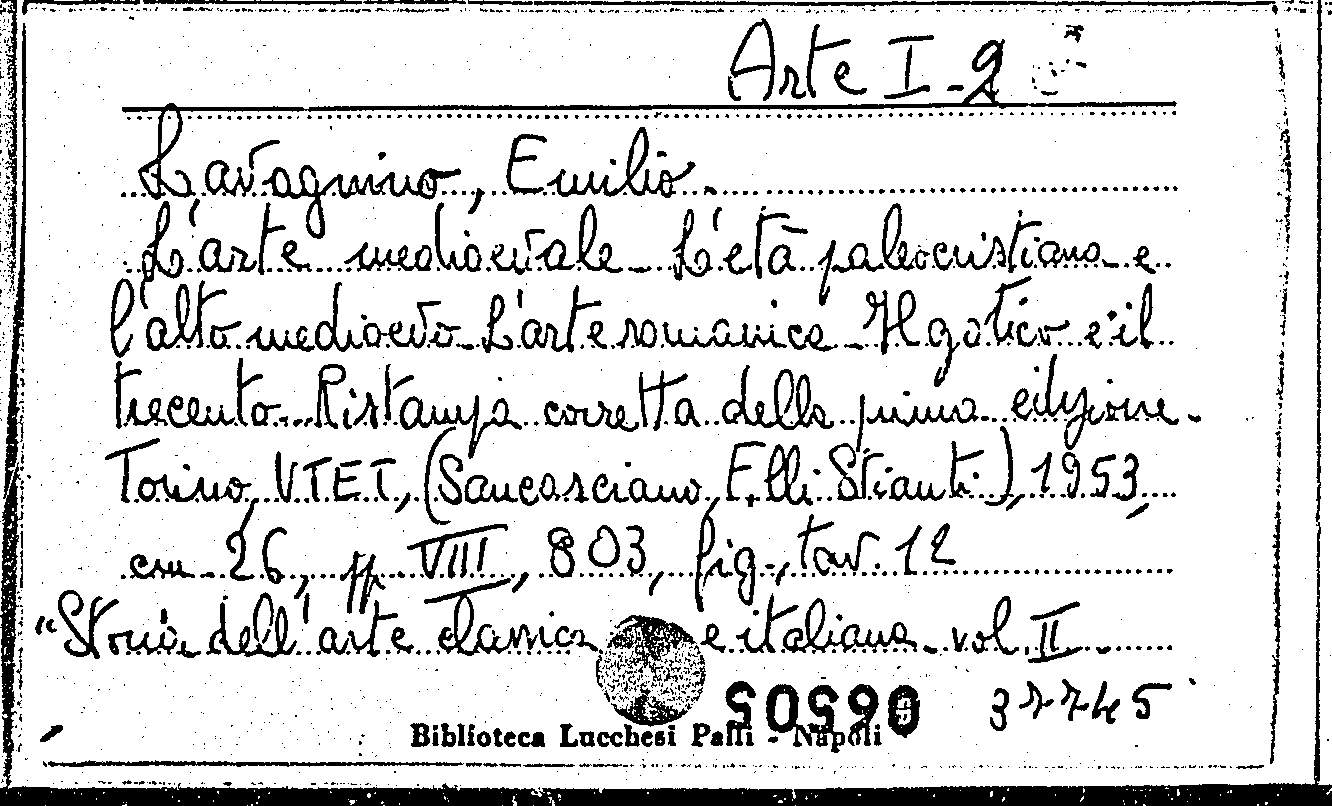 Arte I-2
Lavagnino, Emilio.
L'arte medioevale - L'età paleocristiana e
l'alto medioevo - L'arte romanica - Il gotico e il
trecento - Ristampa corretta della prima edizione -
Torino, UTET, (Sancasciano, F.lli Stianti), 1953,
cm 26, pp VIII, 803, fig., tav. 12
"Storia dell'arte classica e italiana - vol. II
37745
Biblioteca Lucchesi Palli - Napoli